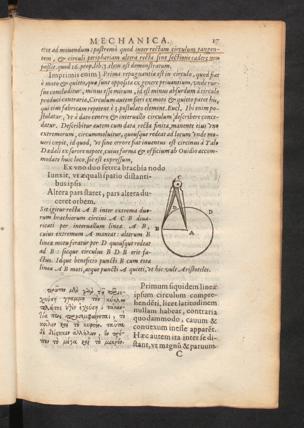 MECHANICA. 17
tiæ ad mouendum: postremò quod inter rectam circulum tangen-
tem, & circuli peripheriam altera recta sine sectione cadere non
possit. quod 16. prop. lib. 3. elem. est demonstratum.
Imprimis enim) Prima repugnantia est in circulo, quod fiat
è moto & quieto, quæ sunt opposita ex genere priuantium, vnde rur-
sus concluditur, minus esse mirum, id est minus absurdum à circulo
produci contraria, Circulum autem fieri ex moto & quieto patet his,
qui eius fabricam repetent à 3. postulato element. Eucl. Ibi enim po-
stulatur, vt à dato centro & interuallo circulum describere conce-
datur. Describitur autem cum data recta finita, manente vno
extremorum, circumuoluitur, quousque redeat ad locum vnde mo-
ueri cœpit, id quod, vt sine errore fiat inuentus est circinus à Talo
Dædali ex sorore nepote, cuius forma & officium ab Ouidio accom-
modatè huic loco, sic est expressum,
Ex vno duo ferrea brachia nodo
Iunxit, vt æquali spatio distanti-
bus ipsis
Altera pars staret, pars altera du-
ceret orbem.
Sit igitur recta A B inter extrema duo-
rum brachiorum circini A C B diua-
ricati per interuallum lineæ A B,
cuius extremum A maneat: alterum B
lineæ motu feratur per D quousque redeat
ad B: sicque circulus B D B erit fa-
ctus. Idque beneficio puncti B cum tota
linea A B moti, atque puncti A quieti, vt hic vult Aristoteles.
C
D
B
A
Primum siquidem lineæ
ipsum circulum compre-
hendēti, licet latitudinem
nullam habeat, contraria
quodammodo, cauum &
conuexum inesse apparēt.
Hæc autem ita inter se di-
stant, vt magnū & paruum.
C